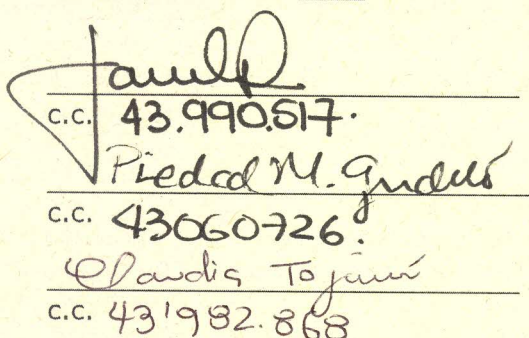 C.C. 43.990.517.
Piedad M.
C.C. 43060726.
Claudia
C.C. 43'982.868